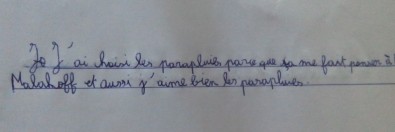 Je J'ai choisi les parapluies parce que sa me fait penser à
Malakoff et aussi j'aime bien les parapluies.